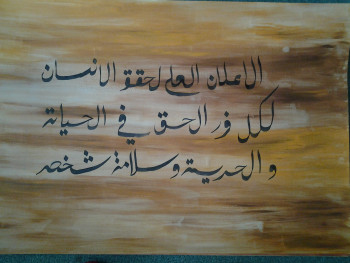 الاعلان العالمي لحقوق الانسان
لكل فرد الحق في الحياة
والحرية وسلامة شخصه